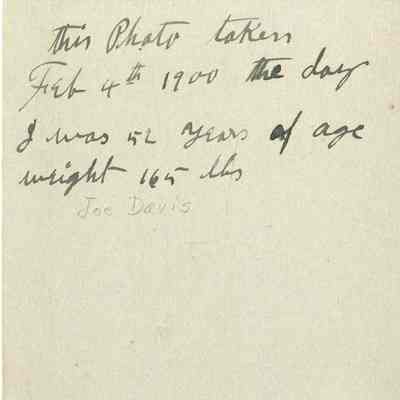 this Photo taken
Feb 4th 1900 the day
I was 52 years of age
weight 165 lbs
Joe Davis